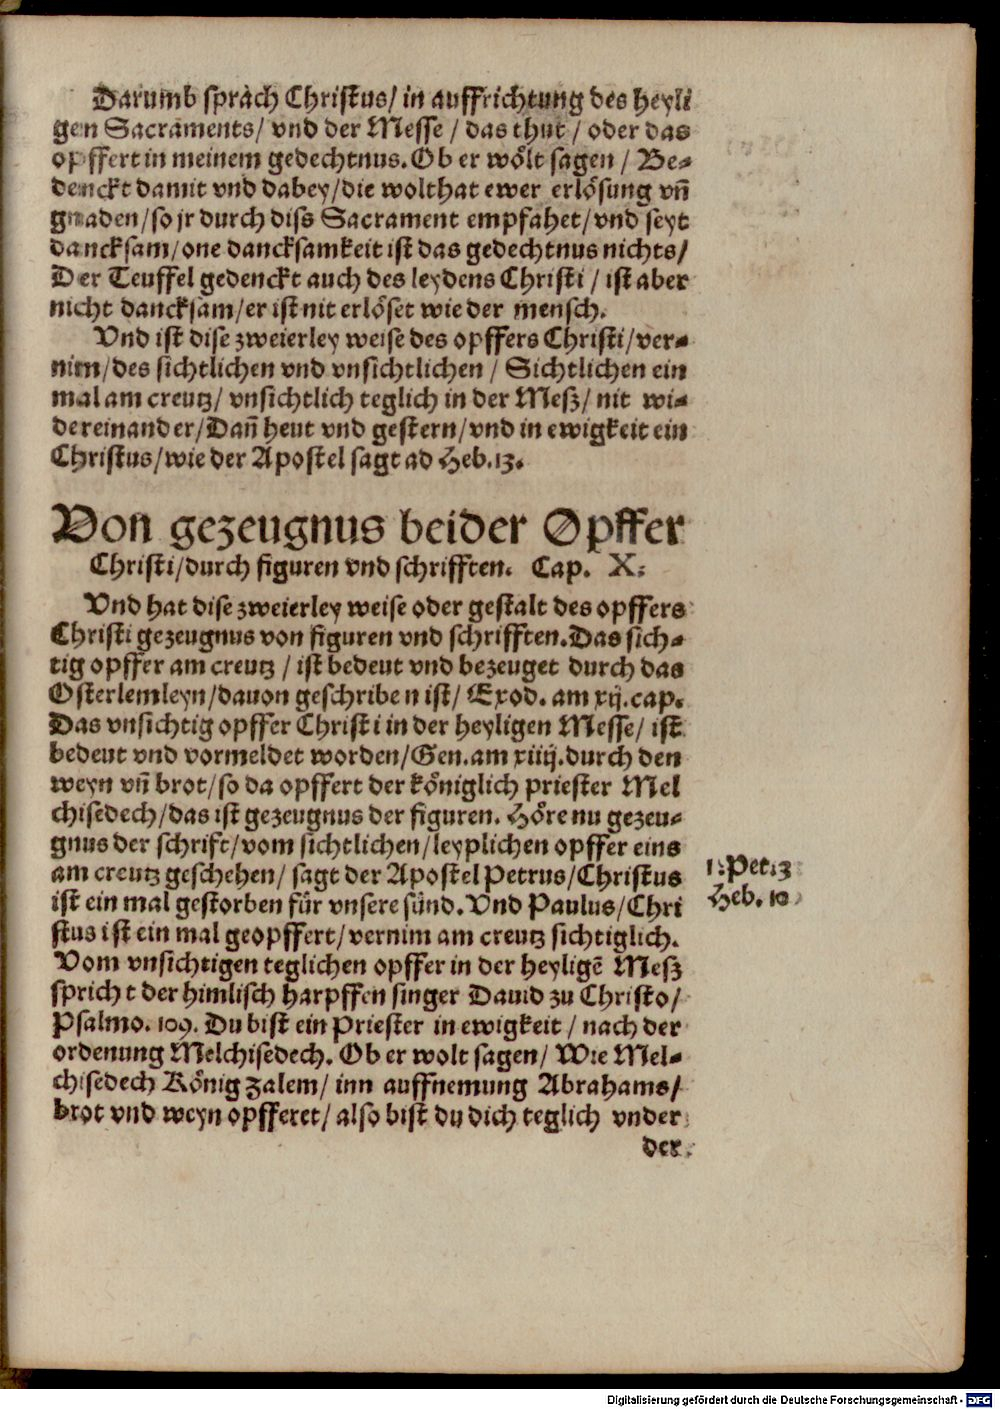 Darumb sprach Christus/ in auffrichtung des heyli
gen Sacraments/ vnd der Messe / das thut / oder das
opffert in meinem gedechtnus. Ob er wölt sagen / Be-
denckt damit vnd dabey/die wolthat ewer erlösung vñ
gnaden/so jr durch diss Sacrament empfahet/vnd seyt
dancksam/one dancksamkeit ist das gedechtnus nichts/
Der Teuffel gedenckt auch des leydens Christi / ist aber
nicht dancksam/er ist nit erlöset wie der mensch.
Vnd ist dise zweierley weise des opffers Christi/ver-
nim/des sichtlichen vnd vnsichtlichen / Sichtlichen ein
mal am creutz/ vnsichtlich teglich in der Meß/ nit wi-
dereinander/Dañ heut vnd gestern/vnd in ewigkeit ein
Christus/wie der Apostel sagt ad Heb.13.
Von gezeugnus beider Opffer
Christi/durch figuren vnd schrifften. Cap. X.
Vnd hat dise zweierley weise oder gestalt des opffers
Christi gezeugnus von figuren vnd schrifften.Das sich-
tig opffer am creutz / ist bedeut vnd bezeuget durch das
Osterlemleyn/dauon geschriben ist/ Exod. am xij.cap.
Das vnsichtig opffer Christi in der heyligen Messe/ ist
bedeut vnd vormeldet worden/Gen.am xiiij.durch den
weyn vñ brot/so da opffert der königlich priester Mel
chisedech/das ist gezeugnus der figuren. Höre nu gezeu-
gnus der schrift/vom sichtlichen/leyplichen opffer eins
am creutz geschehen/ sagt der Apostel Petrus/Christus
ist ein mal gestorben für vnsere sünd.Vnd Paulus/Chri
stus ist ein mal geopffert/vernim am creutz sichtiglich.
Vom vnsichtigen teglichen opffer in der heyligē Meß
spricht der himlisch harpffen singer Dauid zu Christo/
Psalmo. 109. Du bist ein Priester in ewigkeit / nach der
ordenung Melchisedech. Ob er wolt sagen/ Wie Mel-
chisedech König Zalem/ inn auffnemung Abrahams/
brot vnd weyn opfferet/ also bist du dich teglich vnder
der
1.Pet.3
Heb. 10
Digitalisierung gefördert durch die Deutsche Forschungsgemeinschaft - DFG